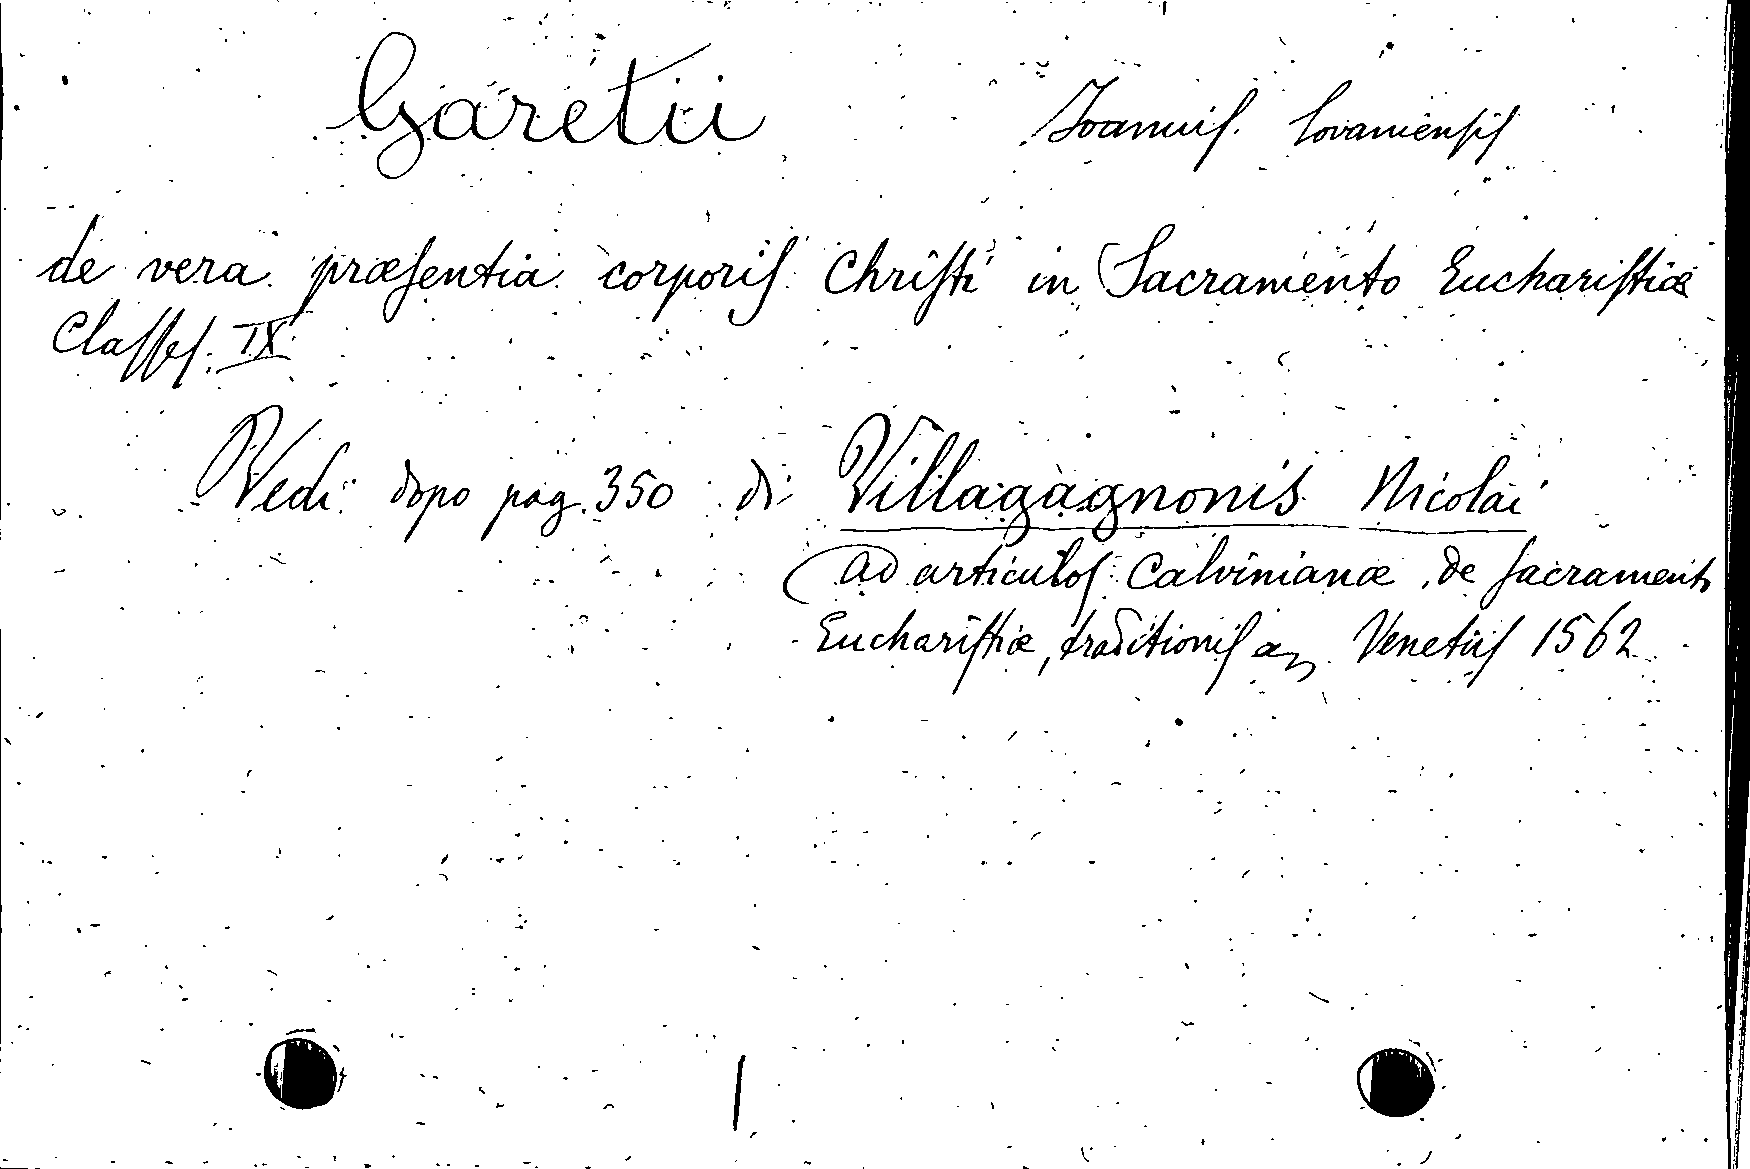 Garetii Joannis. Lovaniensis
de vera præsentia corporis Christi in Sacramento Eucharistiæ
Classes. IX
Vedi dopo pag. 350 di Villagagnonis Nicolai
Ad articulos Calvinianæ, de sacramento
Eucharistiæ, traditionis Venetiis 1562